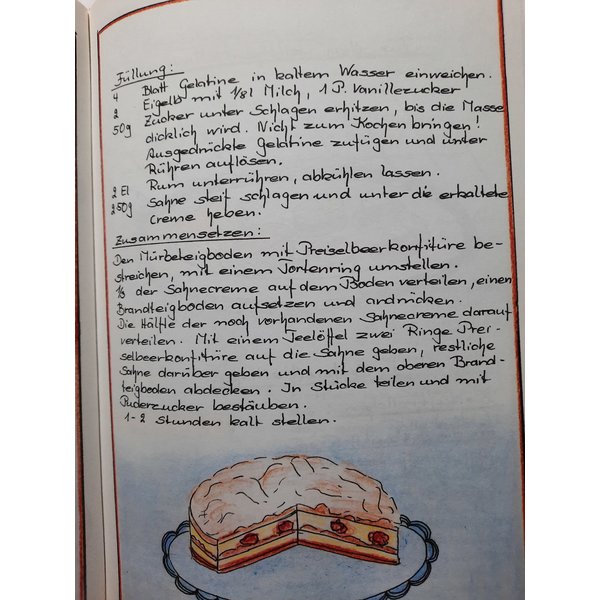 Füllung:
4 Blatt Gelatine in kaltem Wasser einweichen.
2 Eigelb mit 1/8 l Milch, 1 P. Vanillezucker
50g Zucker unter Schlagen erhitzen, bis die Masse
dicklich wird. Nicht zum Kochen bringen!
Ausgedrückte Gelatine zufügen und unter
Rühren auflösen.
2 El Rum unterrühren, abkühlen lassen.
250g Sahne steif schlagen und unter die erkaltete
Creme heben.
Zusammensetzen:
Den Mürbeteigboden mit Preiselbeerkonfitüre be-
streichen, mit einem Tortenring umstellen.
1/3 der Sahnecreme auf dem Boden verteilen, einen
Brandteigboden aufsetzen und andrücken.
Die Hälfte der noch vorhandenen Sahnecreme darauf
verteilen. Mit einem Teelöffel zwei Ringe Prei-
selbeerkonfitüre auf die Sahne geben, restliche
Sahne darüber geben und mit dem oberen Brand-
teigboden abdecken. In Stücke teilen und mit
Puderzucker bestäuben.
1-2 Stunden kalt stellen.